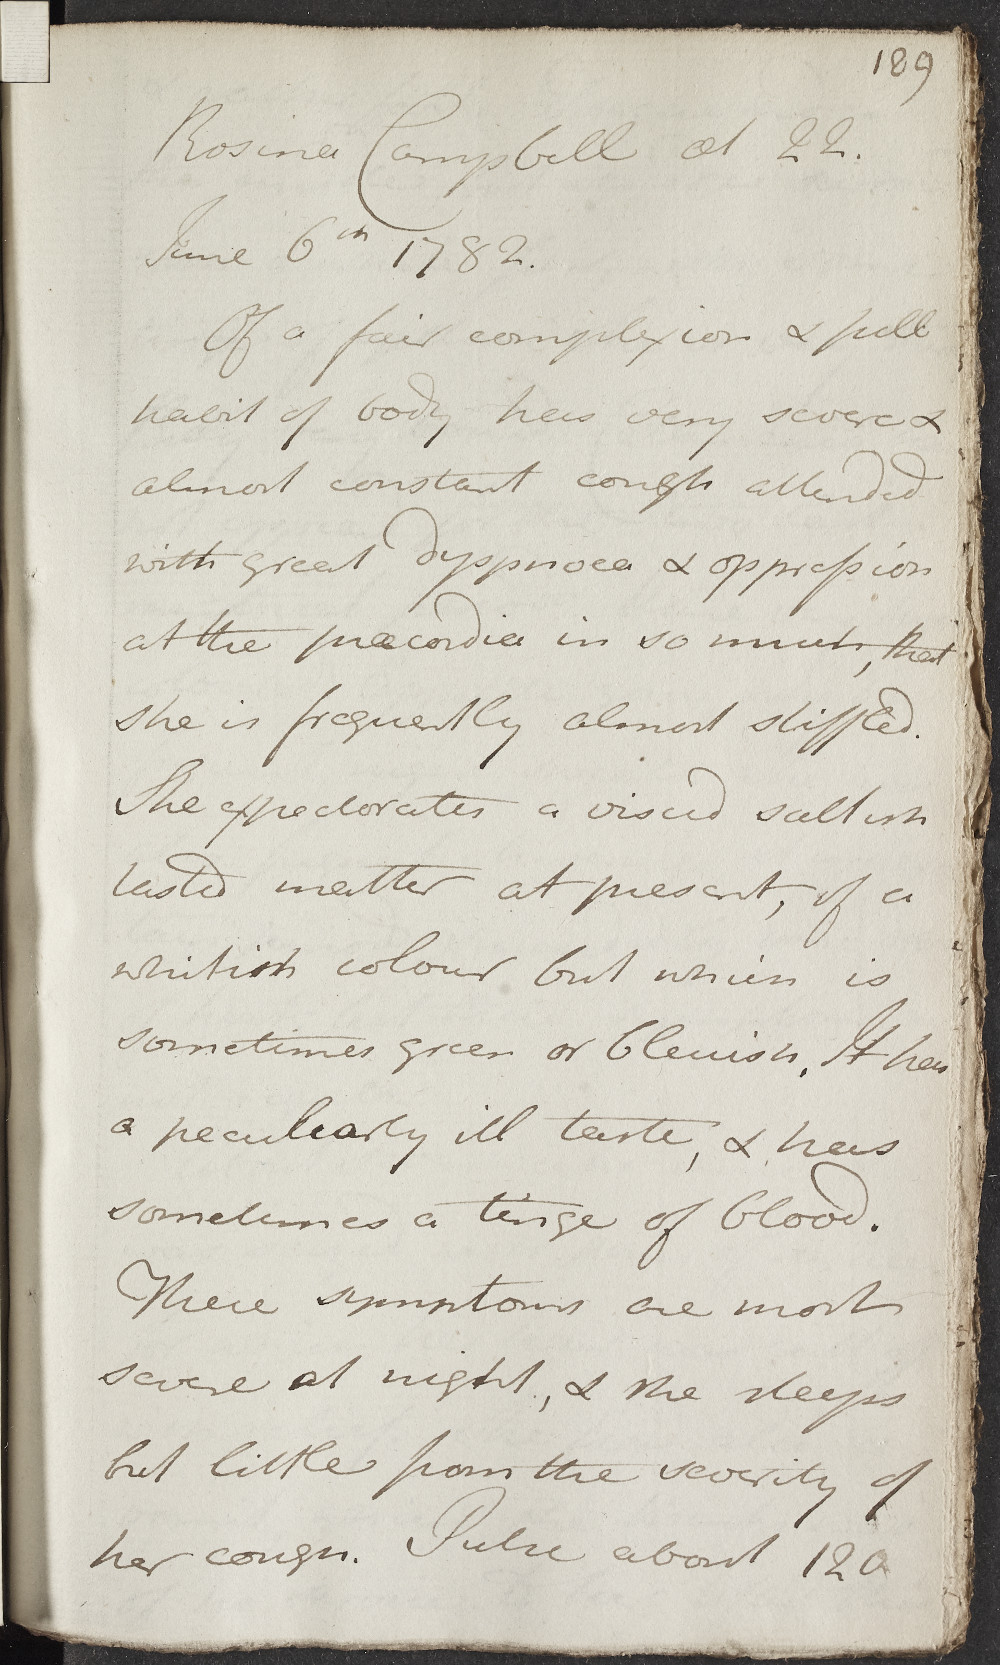 189
Rosina Campbell æt 22.
June 6th 1782.
Of a fair complexion & full
habit of body has very severe &
almost constant cough attended
with great dyspnoea & oppression
at the præcordia in so much, that
she is frequently almost stiffled.
She expectorates a viscid saltish
tasted matter at present, of a
whitish colour but which is
sometimes green or bleuish, It has
a peculiarly ill taste, & has
sometimes a tinge of blood.
These symptoms are most
severe at night, & she sleeps
but little from the severity of
her cough. Pulse about 120